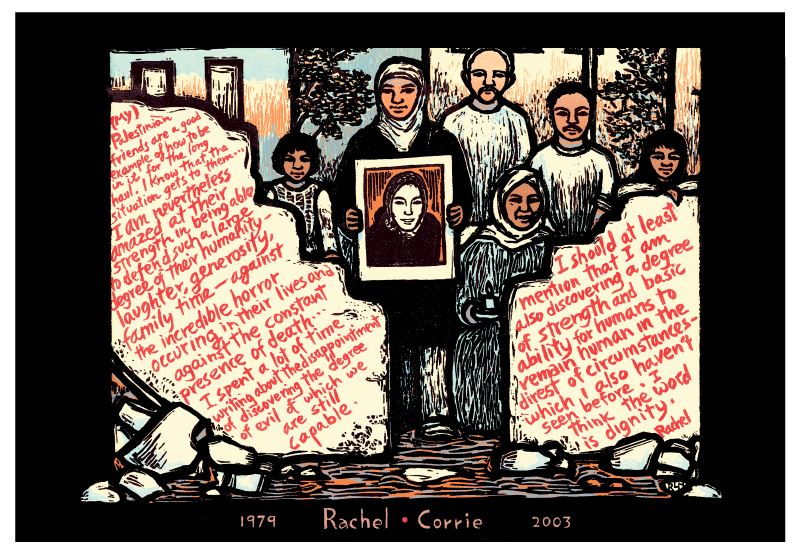 (My)
Palestinian
friends are a good
example of how to be
in it for the long
haul. I know that the
situation gets to them...
I am nevertheless
amazed at their
strength in being able
to defend such a large
degree of their humanity,
laughter, generosity,
family time — against
the incredible horror
occuring in their lives and
against the constant
presence of death.
I spent a lot of time
writing about the disappointment
of discovering the degree
of evil of which we
are still
capable.
I should at least
mention that I am
also discovering a degree
of strength and basic
ability for humans to
remain human in the
direst of circumstances—
which I also haven't
seen before. I
think the word
is dignity.
Rachel
1979 Rachel • Corrie 2003